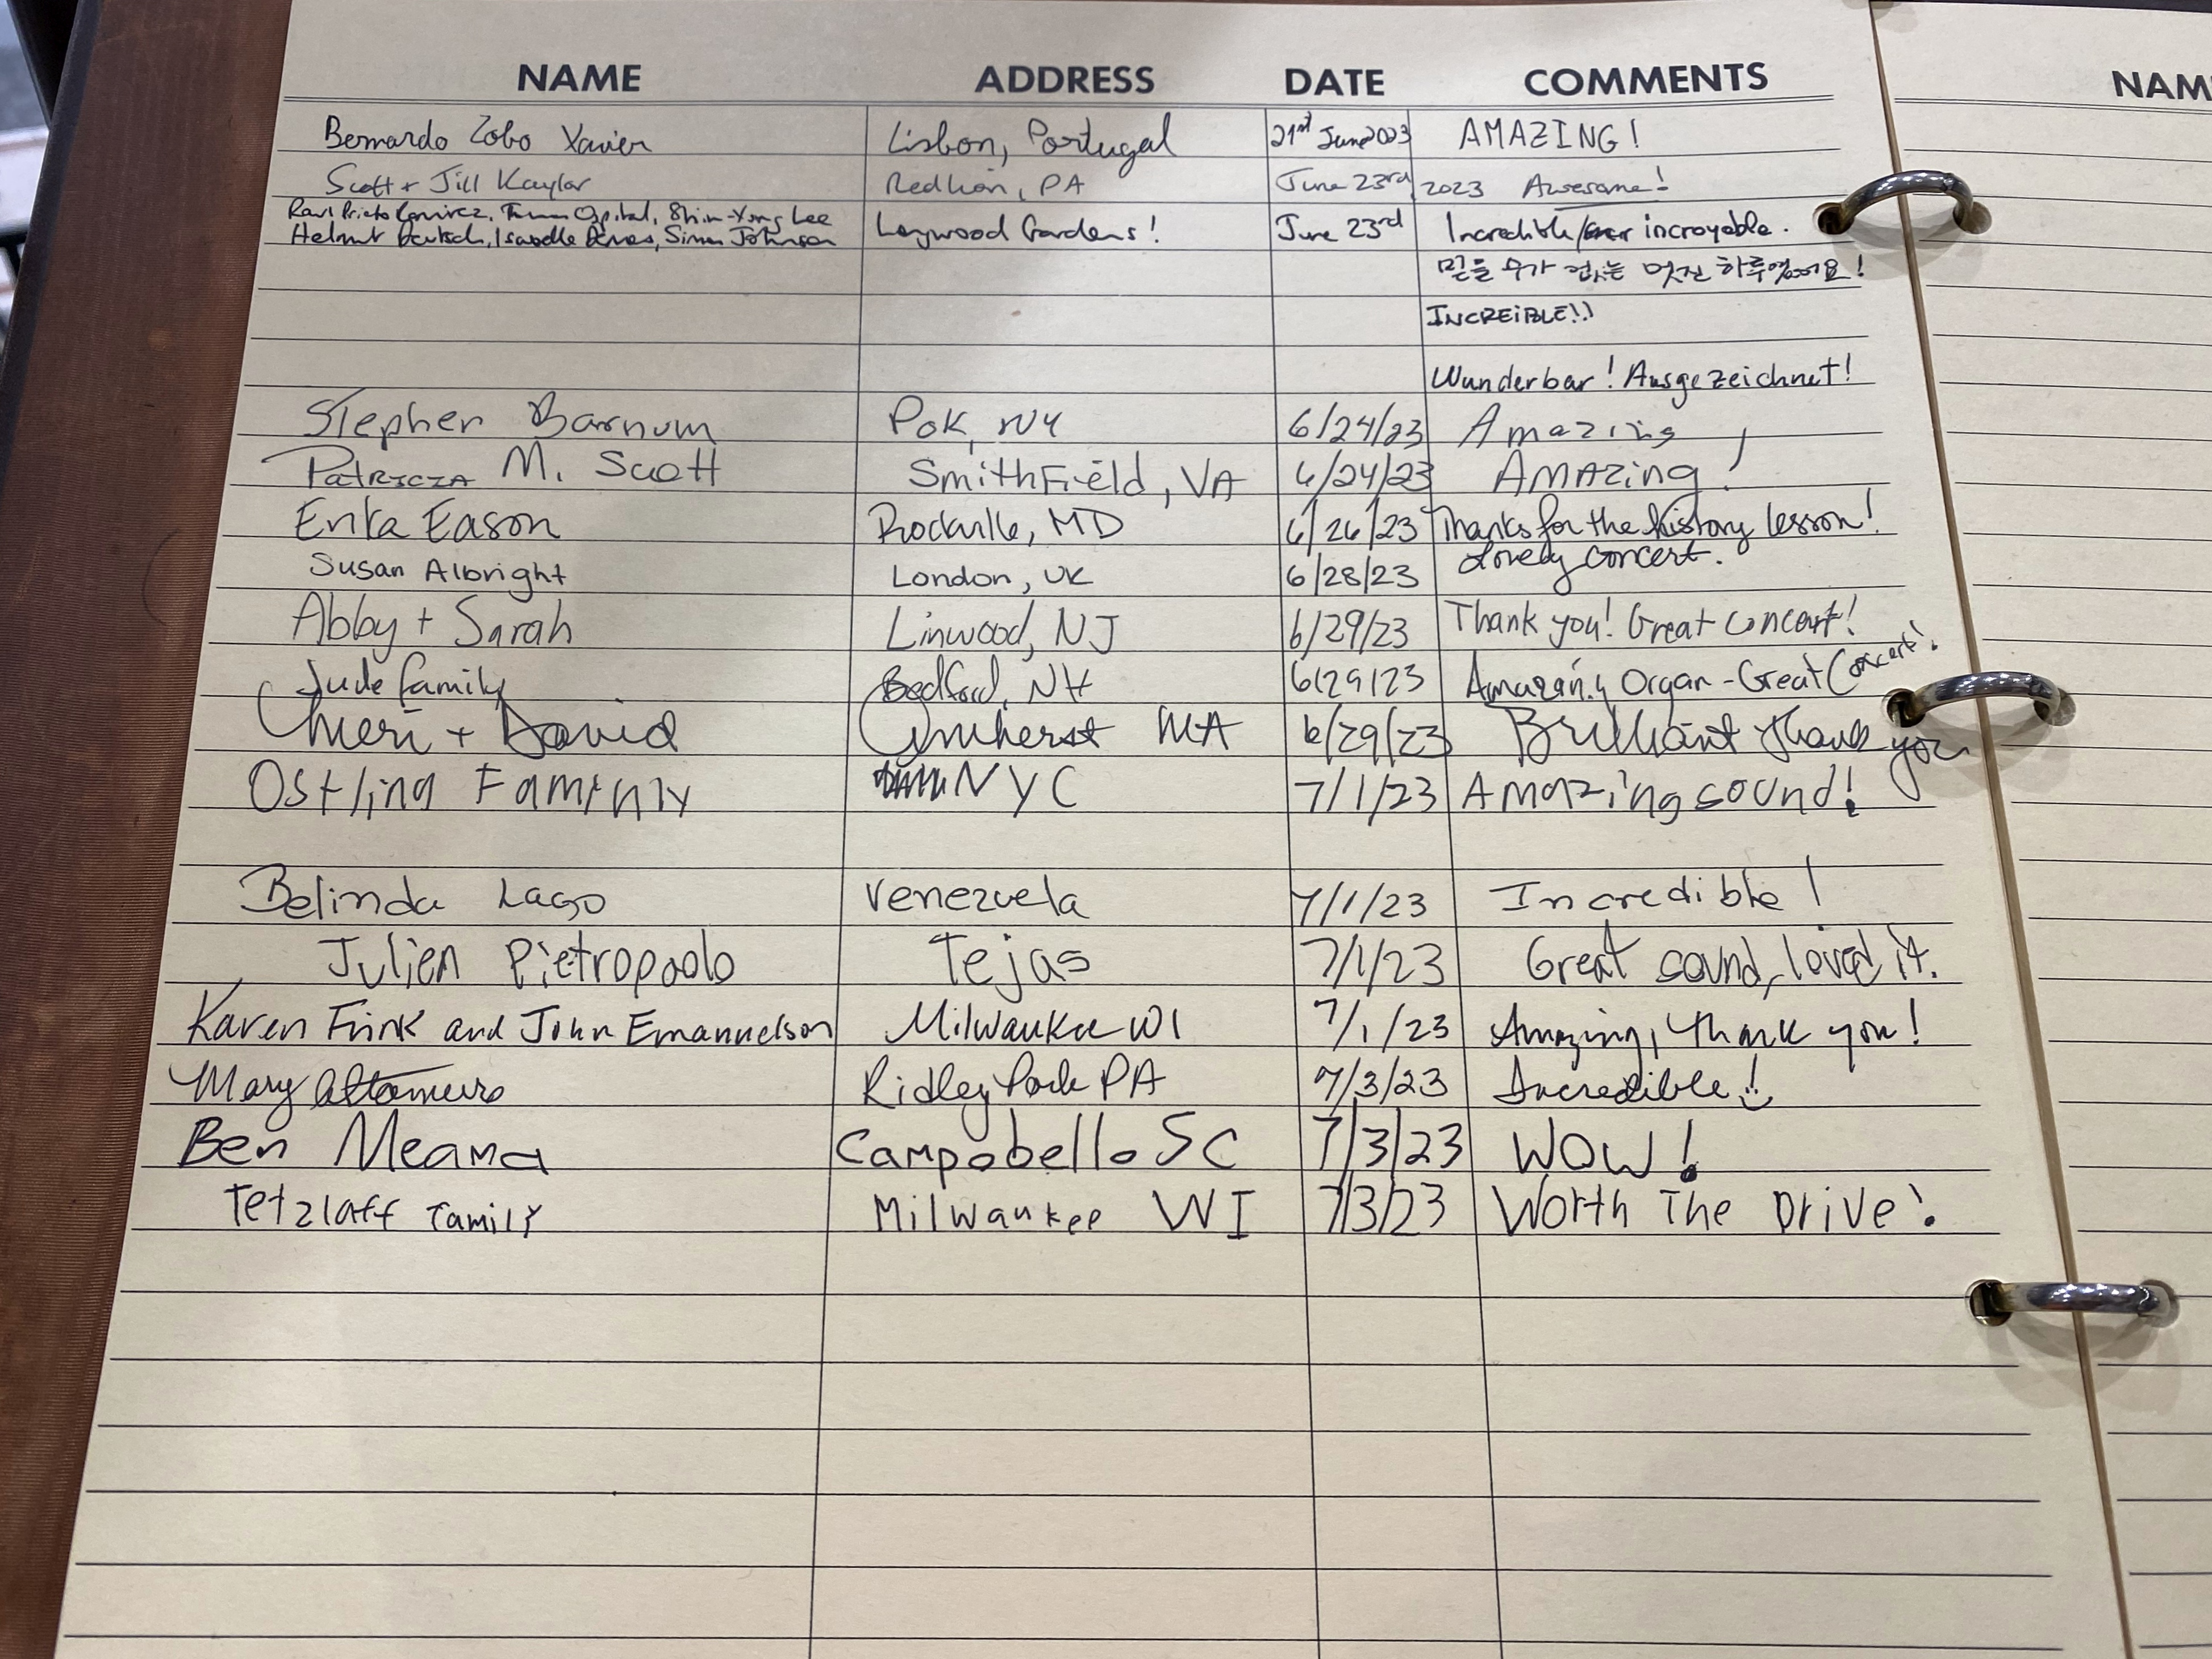 NAME ADDRESS DATE COMMENTS NAM
Bernardo Lobo Xavier Lisbon, Portugal 21st June 2023 AMAZING!
Scott + Jill Kaylor Red Lion, PA June 23rd, 2023 Awesome!
Raul Prieto Ramirez, Shin-Yong Lee
Helmut Deutsch, Isabelle Simon Johnson Longwood Gardens! June 23rd Incredible/ incroyable.
믿을 수가 없는 멋진 하루였어요!
INCREiBLE!!
Wunderbar! Ausgezeichnet!
Stephen Barnum Pok, NY 6/24/23 Amazing
Patricia M. Scott Smithfield, VA 6/24/23 Amazing!
Erika Eason Rockville, MD 6/26/23 Thanks for the history lesson!
Susan Albright London, UK 6/28/23 Lovely concert.
Abby + Sarah Linwood, NJ 6/29/23 Thank you! Great concert!
Jude family Bedford, NH 6/29/23 Amazing Organ - Great Concert!
Cheri + David Amherst MA 6/29/23 Brilliant thank you
Ostling Family NYC 7/1/23 Amazing sound!
Belinda Lago Venezuela 7/1/23 Incredible!
Julien Pietropaolo Tejas 7/1/23 Great sound, loved it.
Karen Frink and John Emanuelson Milwaukee WI 7/1/23 Amazing, thank you!
Mary Altomuro Ridley Park PA 7/3/23 Incredible!
Ben Meana Campobello SC 7/3/23 WOW!
Tetzlaff Family Milwaukee WI 7/3/23 Worth The Drive!